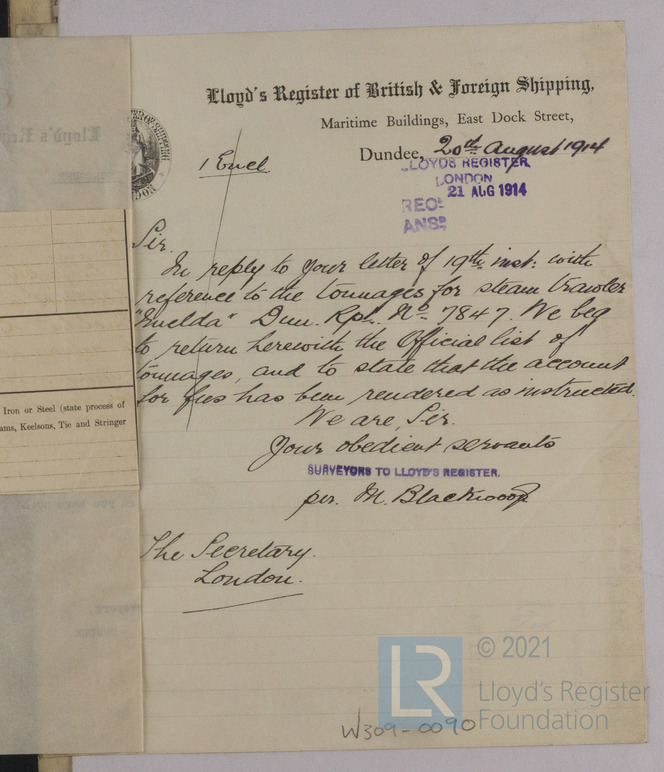 Lloyd's Register of British & Foreign Shipping,
Maritime Buildings, East Dock Street,
Dundee, 20th August 1914
1 Encl
LLOYDS REGISTER
LONDON
21 AUG 1914
REC
ANS
Sir.
In reply to your letter of 19th inst. with
reference to the tonnages for steam trawler
"Imelda" Dun. Rpt. No. 7847. We beg
to return herewith the Official list of
tonnages, and to state that the account
for fees has been rendered as instructed.
We are, Sir.
Your obedient servants
SURVEYORS TO LLOYD'S REGISTER.
per. M. Blackwood
The Secretary.
London.
Iron or Steel (state process of
ams, Keelsons, Tie and Stringer
LR
© 2021
Lloyd's Register
Foundation
W309-0090